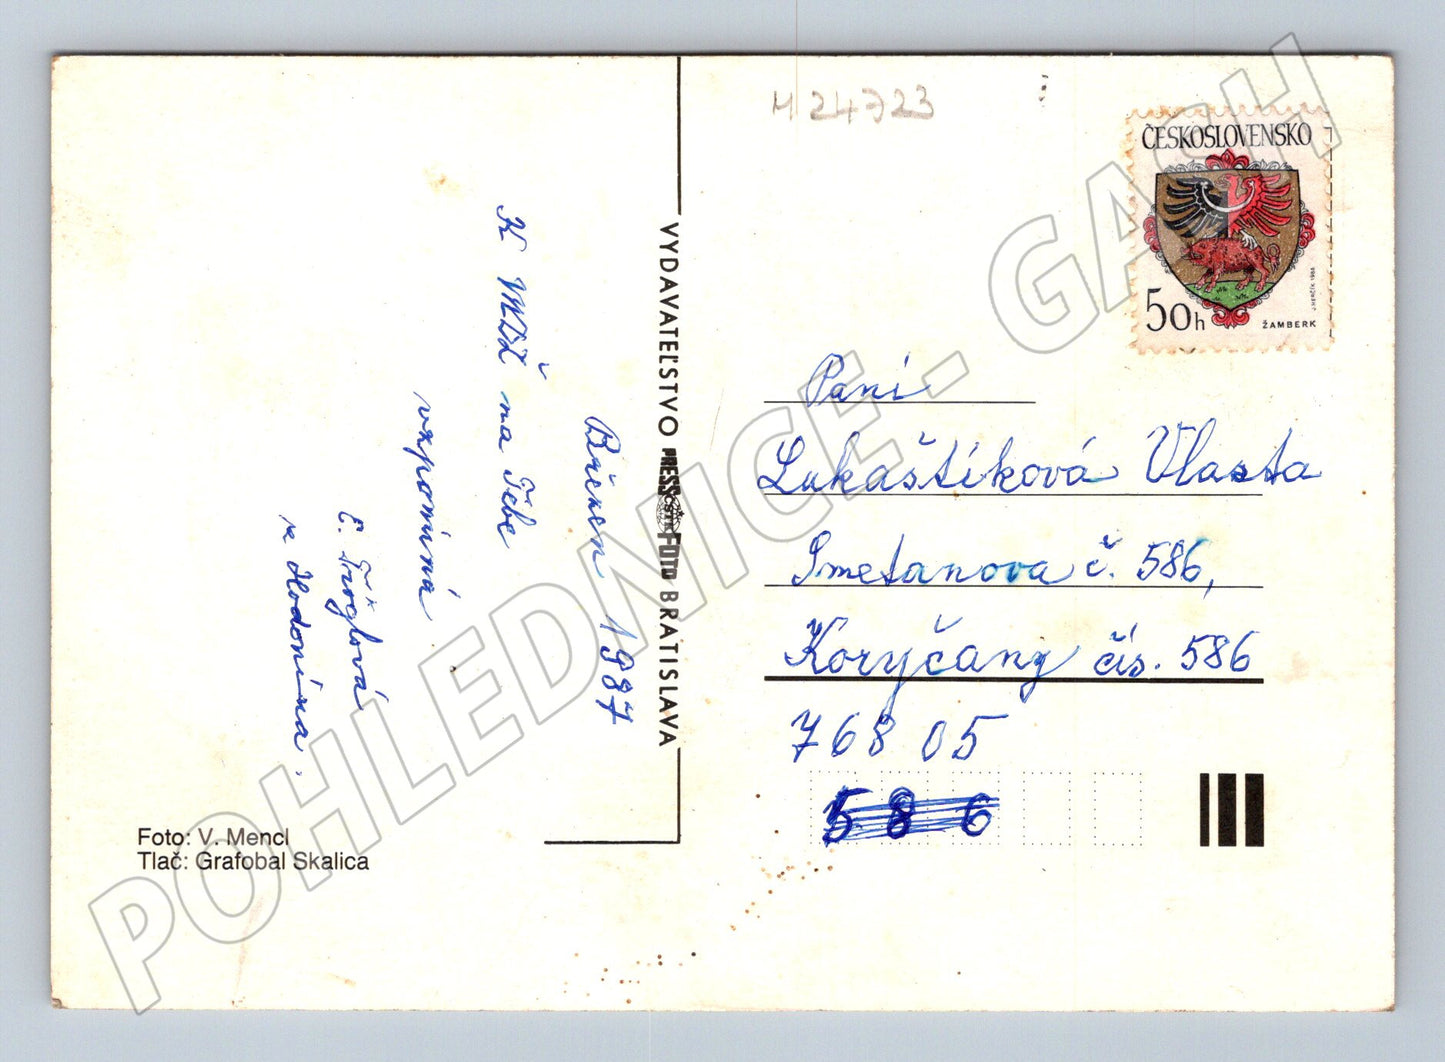 M 24723
ČESKOSLOVENSKO
50h
ŽAMBERK
J. HERČÍK 1986
Březen 1987
K MDŽ na Tebe
vzpomíná
z Hodonína.
VYDAVATEĽSTVO PRESSFOTO BRATISLAVA
ČSTK
Paní
Lukaštíková Vlasta
Smetanova č. 586,
Koryčany čís. 586
768 05
5 8 6
Foto: V. Mencl
Tlač: Grafobal Skalica
POHLEDNICE - GASH